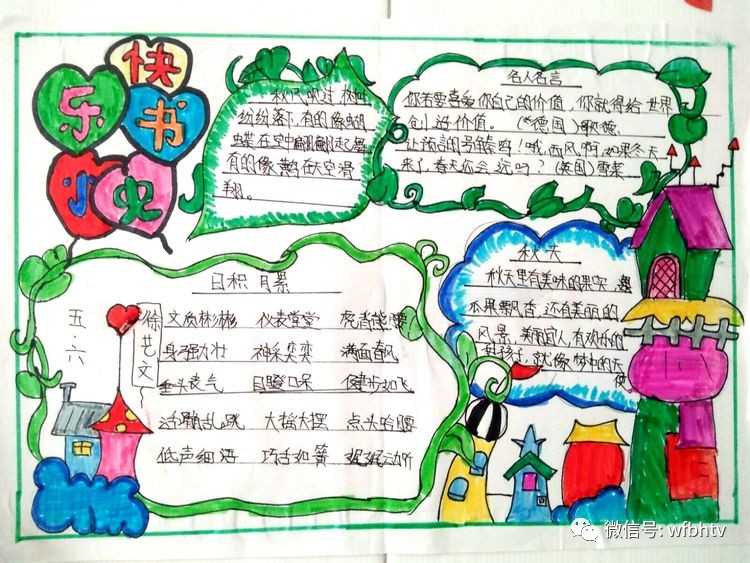 快乐书小虫
秋风吹过，树叶
纷纷落下，有的像蝴
蝶在空中翩翩起舞
有的像燕在天空滑
翔。
名人名言
你若要喜爱你自己的价值，你就得给世界
创造价值。（德国）歌德
让预言的号角鸣！哦，西风啊，如果冬天
来了，春天还会远吗？（英国）雪莱
秋天
秋天里有美味的果实，
瓜果飘香，还有美丽的
风景，美丽宜人，有欢乐的
女孩子，就像梦中的天
使
日积月累
五·六
徐艺文
文质彬彬 仪表堂堂 虎背熊腰
身强力壮 神采奕奕 满面春风
垂头丧气 目瞪口呆 健步如飞
活蹦乱跳 大摇大摆 点头哈腰
低声细语 巧舌如簧 娓娓动听
微信号: wfbhtv